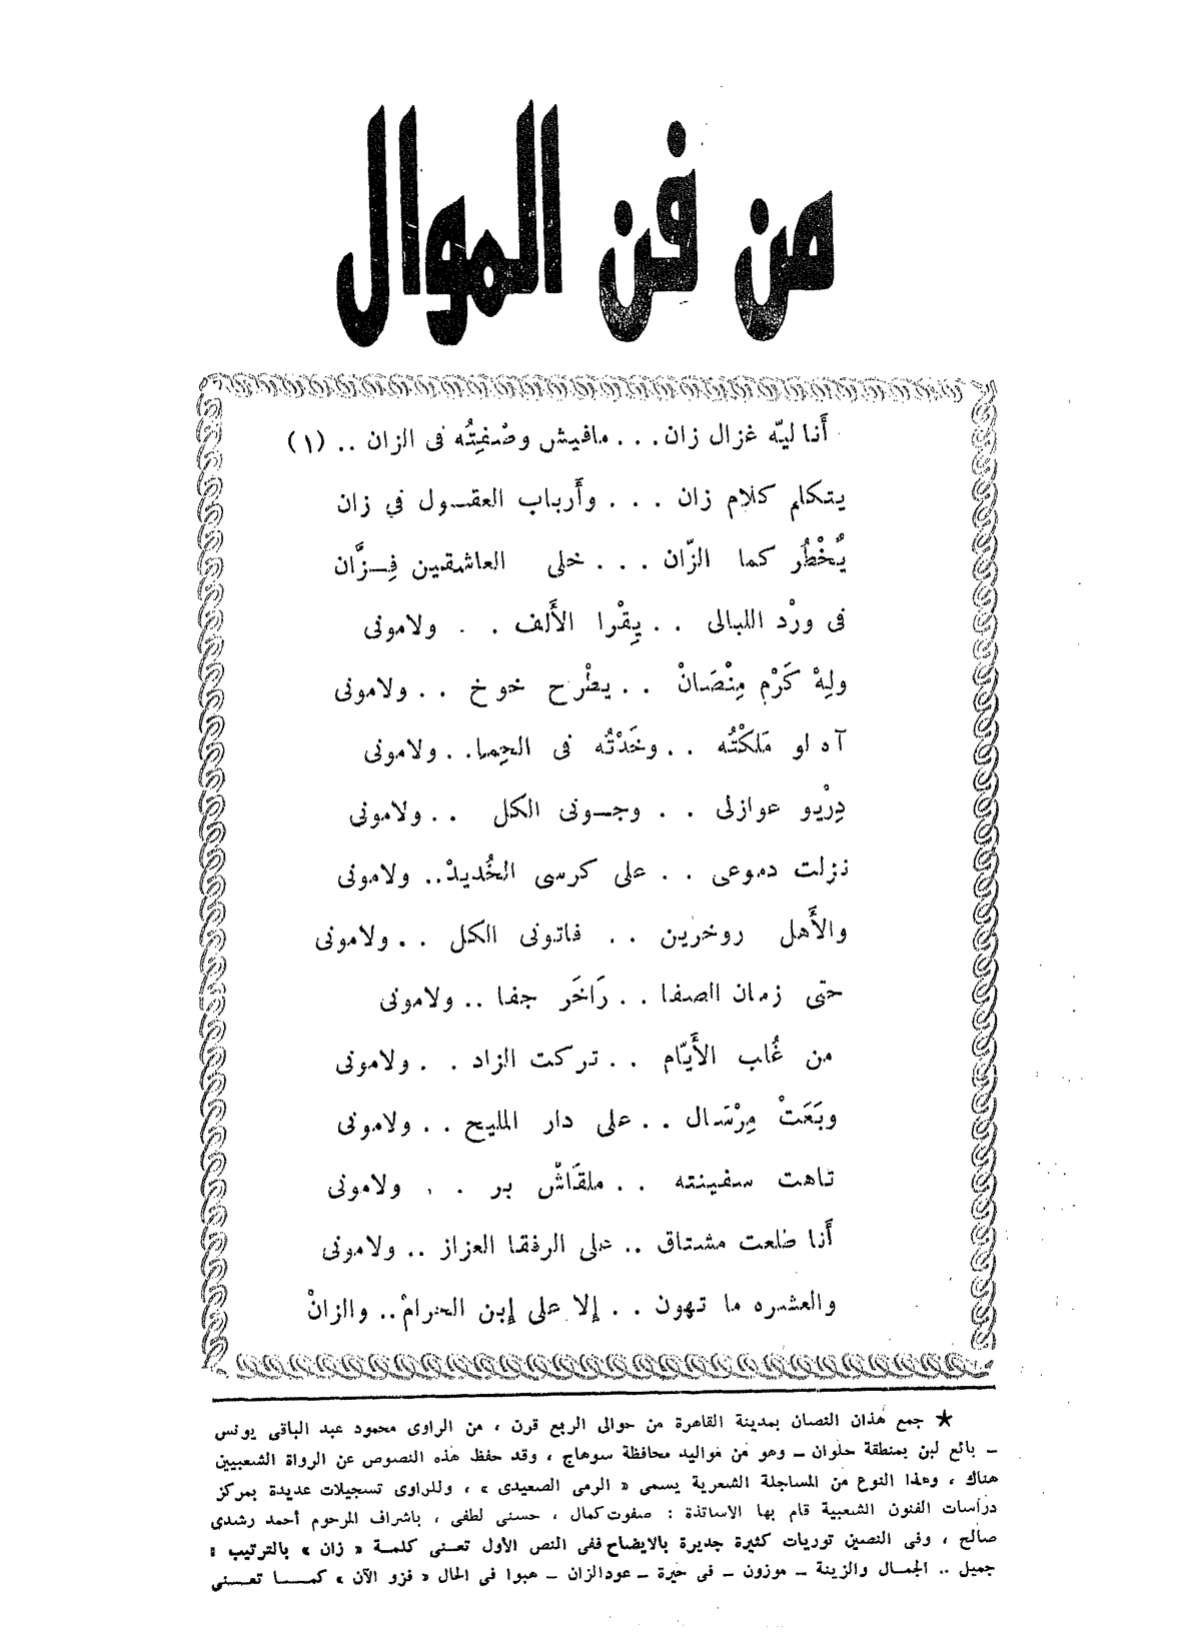 من فن الموال
أَنا ليّه غزال زان . . . مافيش وصْفِتُه فى الزان .. (١)
يتكلم كلام زان . . . وأَرباب العقـول في زان
يُخْطُر كما الزّان . . . خلى العاشقين فِـزَّان
فى ورْد الليالى . . يِقْرا الأَلف . . ولامونى
ولِهْ كَرْم مِنْصَانْ . . يطْرح خوخ . . ولامونى
آه لو مَلَكْتُه . . وخَدْتُه فى الحِما. . ولامونى
دِرْيو عوازلى . . وجـونى الكل . . ولامونى
نزلت دموعى . . على كرسى الخُديدْ.. ولامونى
والأَهل روخرين . . فاتونى الكل . . ولامونى
حتى زمان الصفا . . رَاخَر جفا .. ولامونى
من غُلب الأَيّام . . تركت الزاد . . ولامونى
وبَعَتْ مِرْسَال . . على دار المليح . . ولامونى
تاهت سفينته . . ملقَاشْ بر . . ولامونى
أَنا طلعت مشتاق .. على الرفقا العزاز .. ولامونى
والعشره ما تهون . . إلا على إبن الحرامْ.. والزانْ
★ جمع هذان النصان بمدينة القاهرة من حوالى الربع قرن ، من الراوى محمود عبد الباقى يونس
ـ بائع لبن بمنطقة حلوان ـ وهو من مواليد محافظة سوهاج ، وقد حفظ هذه النصوص عن الرواة الشعبيين
هناك ، وهذا النوع من المساجلة الشعرية يسمى « الرمى الصعيدى » ، وللراوى تسجيلات عديدة بمركز
دراسات الفنون الشعبية قام بها الاساتذة : صفوت كمال ، حسنى لطفى ، باشراف المرحوم أحمد رشدى
صالح ، وفى النصين توريات كثيرة جديرة بالايضاح ففى النص الأول تعـنى كلمـة « زان » بالترتيب :
جميل .. الجمـال والزينة ـ موزون ـ فى حيرة ـ عودالزان ـ هبوا فى الحال « فزو الآن » كمــا تعــنى